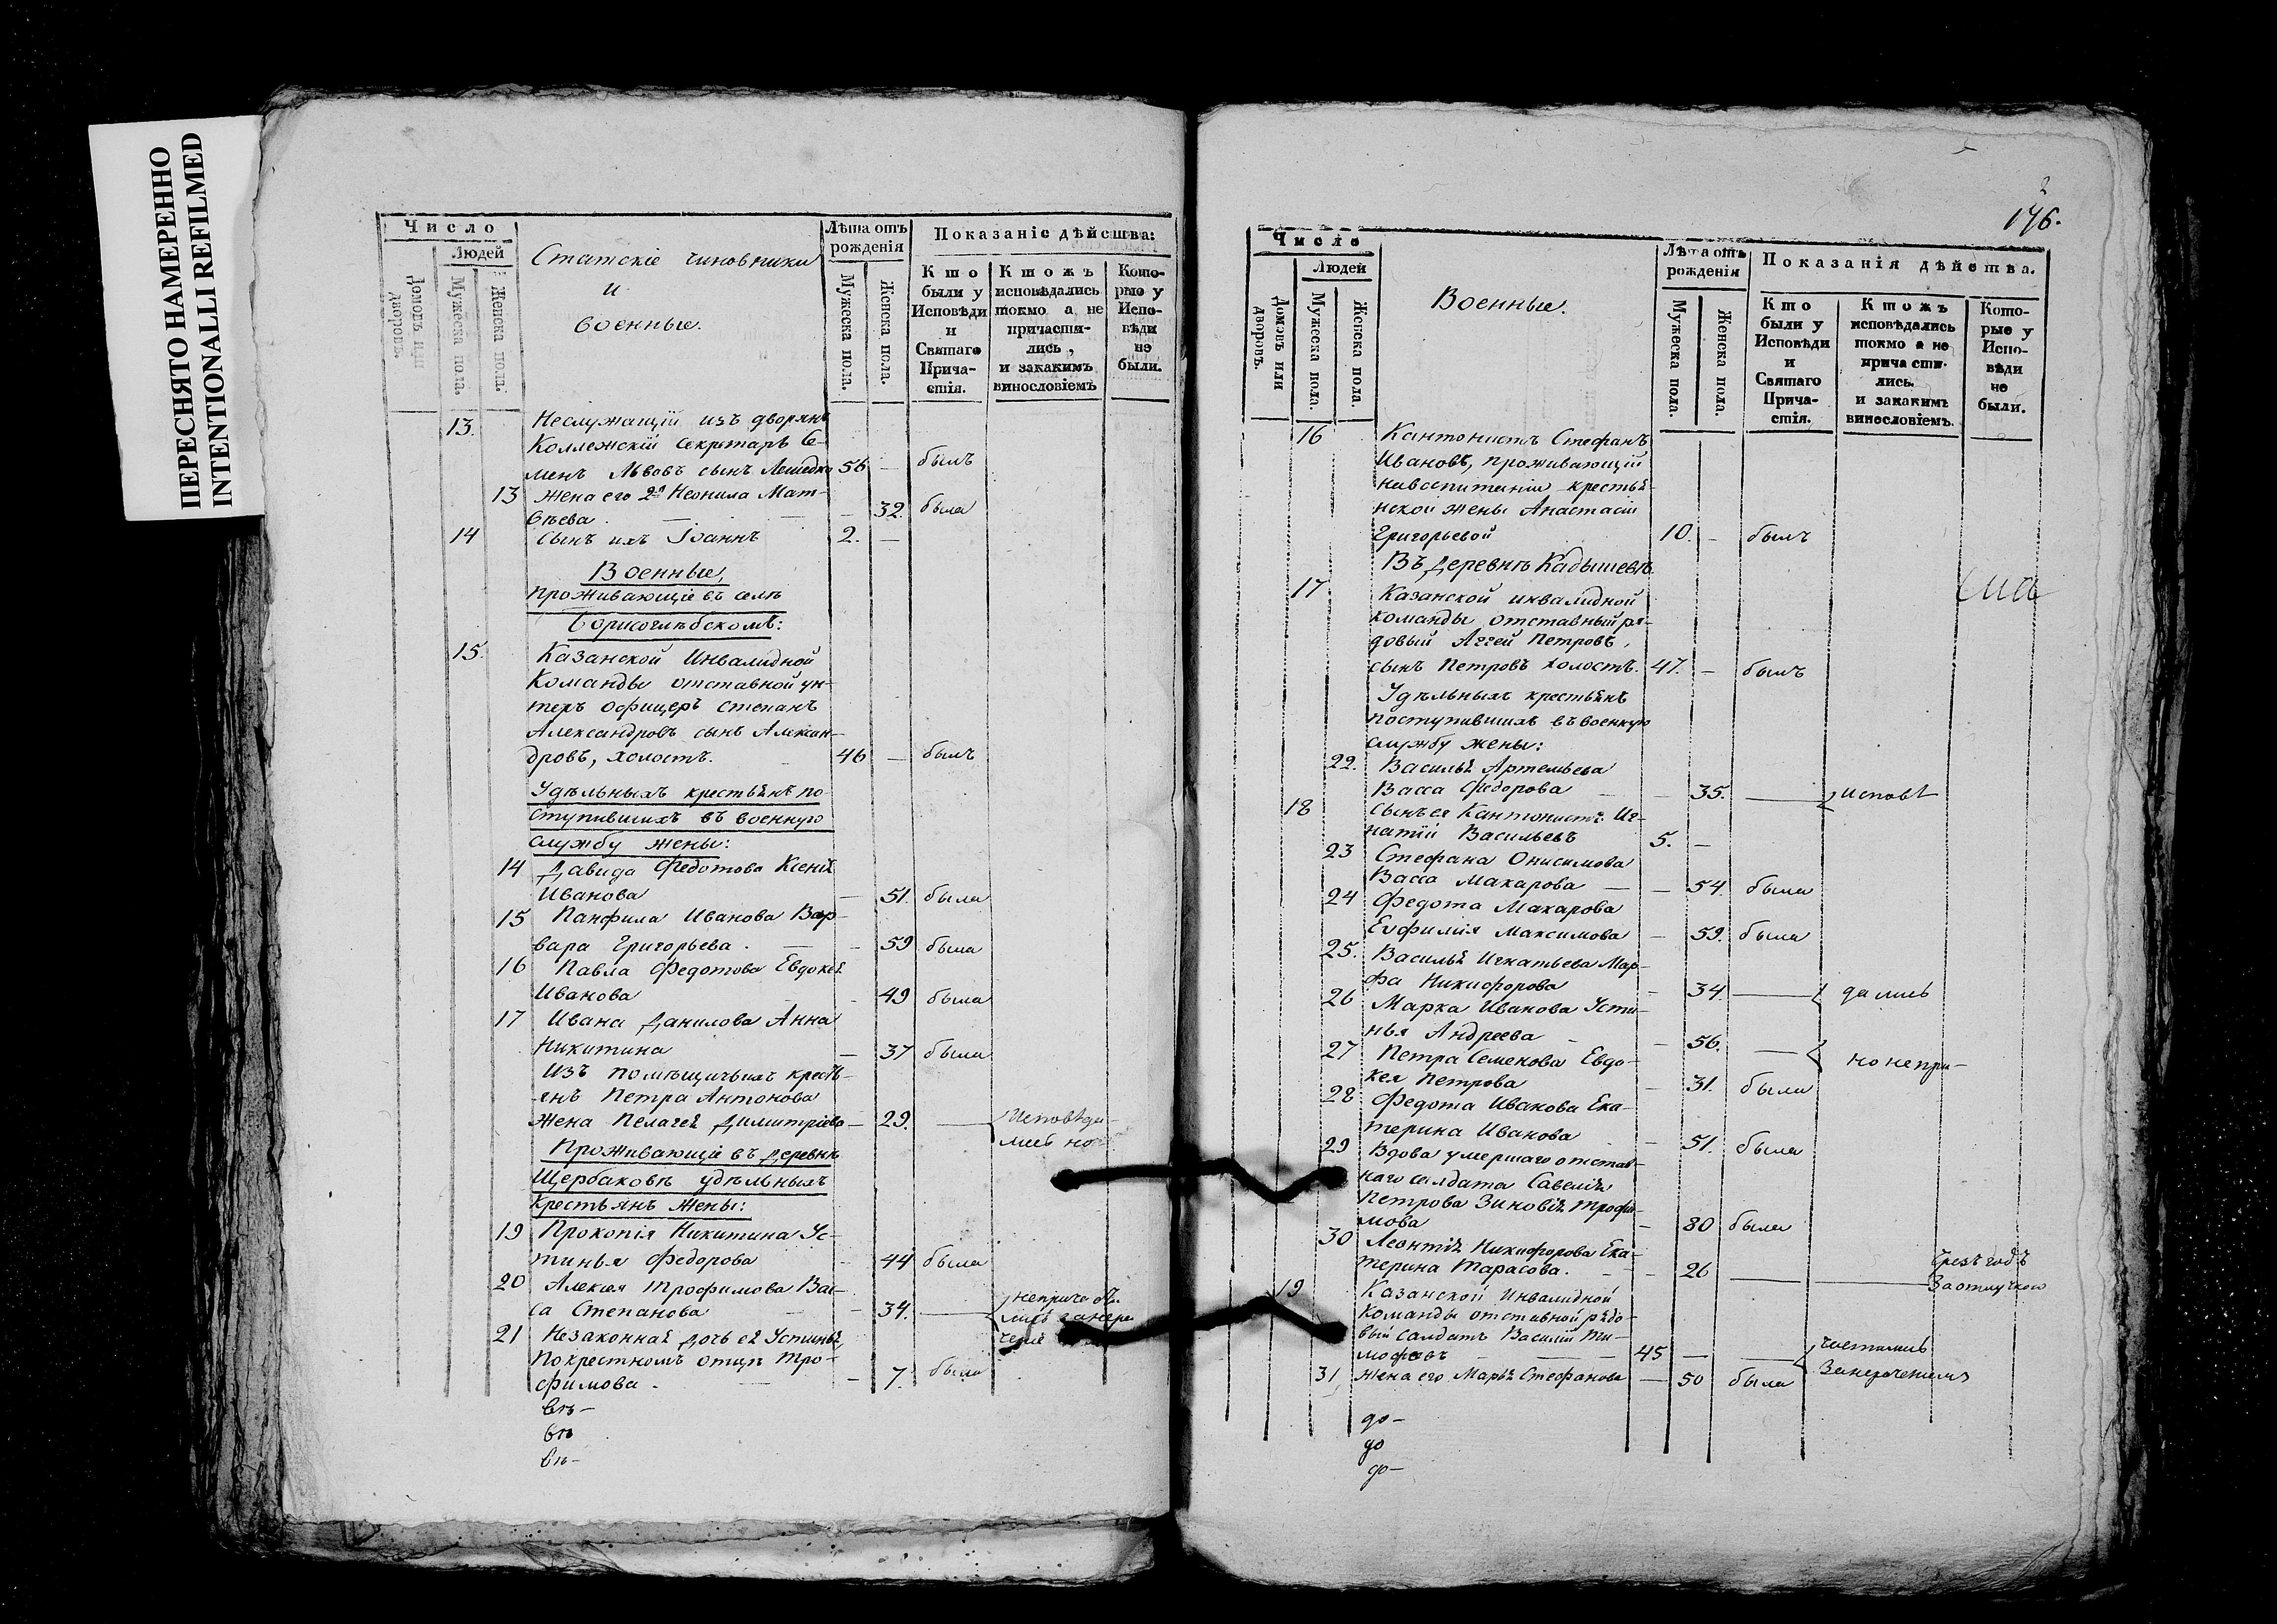 ПЕРЕСНЯТО НАМЕРЕННО
INTENTIONALLI REFILMED
Число
Людей
Домовъ или дворовъ.
Мужеска пола.
Женска пола.
Статскіе чиновники
и
военные.
Лѣта отъ рожденія
Мужеска пола.
Женска пола.
Показаніе дѣйства:
Кто были у Исповѣди и Святаго Прича-стія.
Ктожъ исповѣдались токмо а не причасти-лись, и закакимъ винословіемъ
Кото-рые у Испо-вѣди не были.
13. Неслужащій изъ дворянъ
Коллежскій Секретарь Се-
менъ Львовъ сынъ 56 — былъ
13 Жена его 2я Неонила Мат-
вѣева. — — 32. была
14 Сынъ ихъ Іоаннъ 2. —
Военные,
проживающіе въ селѣ
Борисоглѣбскомъ:
15. Казанской Инвалидной
Команды отставной ун-
теръ офицеръ Степанъ
Александровъ сынъ Алексан-
дровъ, холостъ. 46 — былъ
Удѣльныхъ крестьянъ по-
ступившихъ въ военную
службу жены:
14 Давида Федотова Ксенія
Иванова — 51. была
15 Панфила Иванова Вар-
вара Григорьева. — — 59 была
16 Павла Федотова Евдокея
Иванова - 49 была
17 Ивана Данилова Анна
Никитина — 37 была
Изъ помѣщичьихъ кресть-
янъ Петра Антонова
жена Пелагея Димитріева — 29. — Исповѣда-
лись но
Проживающіе въ деревнѣ
Щербаковѣ удѣльныхъ
крестьянъ жены:
19 Прокопія Никитина Ус-
тинья Федорова - 44 была
20 Алексея Трофимова Вас-
са Степанова - 34. — непричасти
лись занере
ченіе
21 Незаконная дочь ея Устинья,
по крестномъ отцѣ Тро-
фимова. — - 7. была
вѣ-
вѣ
вѣ-
176.
Число
Людей
Домовъ или дворовъ.
Мужеска пола.
Женска пола.
Военные.
Лѣта отъ рожденія
Мужеска пола.
Женска пола.
Показанія дѣйства.
Кто были у Исповѣди и Святаго Прича-стія.
Ктожъ исповѣдались токмо а не прича сти-лись. и закакимъ винословіемъ.
Кото-рые у Испо-вѣди не были.
16 Кантонистъ Стефанъ
Ивановъ, проживающій
навоспитаніи крестья-
нской жены Анастасіи
Григорьевой 10. - былъ
Въ деревнѣ Кадышевѣ
17 Казанской инвалидной
команды отставный ря-
довый Аггей Петровъ,
сынъ Петровъ холостъ. 47. - былъ
Удѣльныхъ крестьянъ
поступившихъ въ военную
службу жены:
22. Василья Артемьева
Васса Федорова — — 35. — исповѣ
18 Сынъ ея Кантонистъ Иг-
натій Васильевъ 5. —
23 Стефана Онисимова
Васса Макарова — — 54. была
24 Федота Макарова
Евфимія Максимова - 59. была
25. Василья Игнатьева Мар-
фа Никифорова - 34. — дались
26 Марка Иванова Усти-
нья Андреева - - 56. —
27 Петра Семенова Евдо- но непри-
кея Петрова - 31. была
28 Федота Иванова Ека-
терина Иванова - 51. была
29 Вдова умершаго отстав-
наго солдата Савелія
Петрова Зиновія Трофи-
мова - 80 была
30 Леонтія Никифорова Ека-
терина Тарасова. - - 26 — — Чрезъ годъ
Заотлучкою
19 Казанской Инвалидной
команды отставной рядо-
вый солдатъ Василій Ти-
мофѣевъ — — 45 — — частились
31 Жена его Марья Стефанова — 50 была Занереченіемъ
до-
до
до-